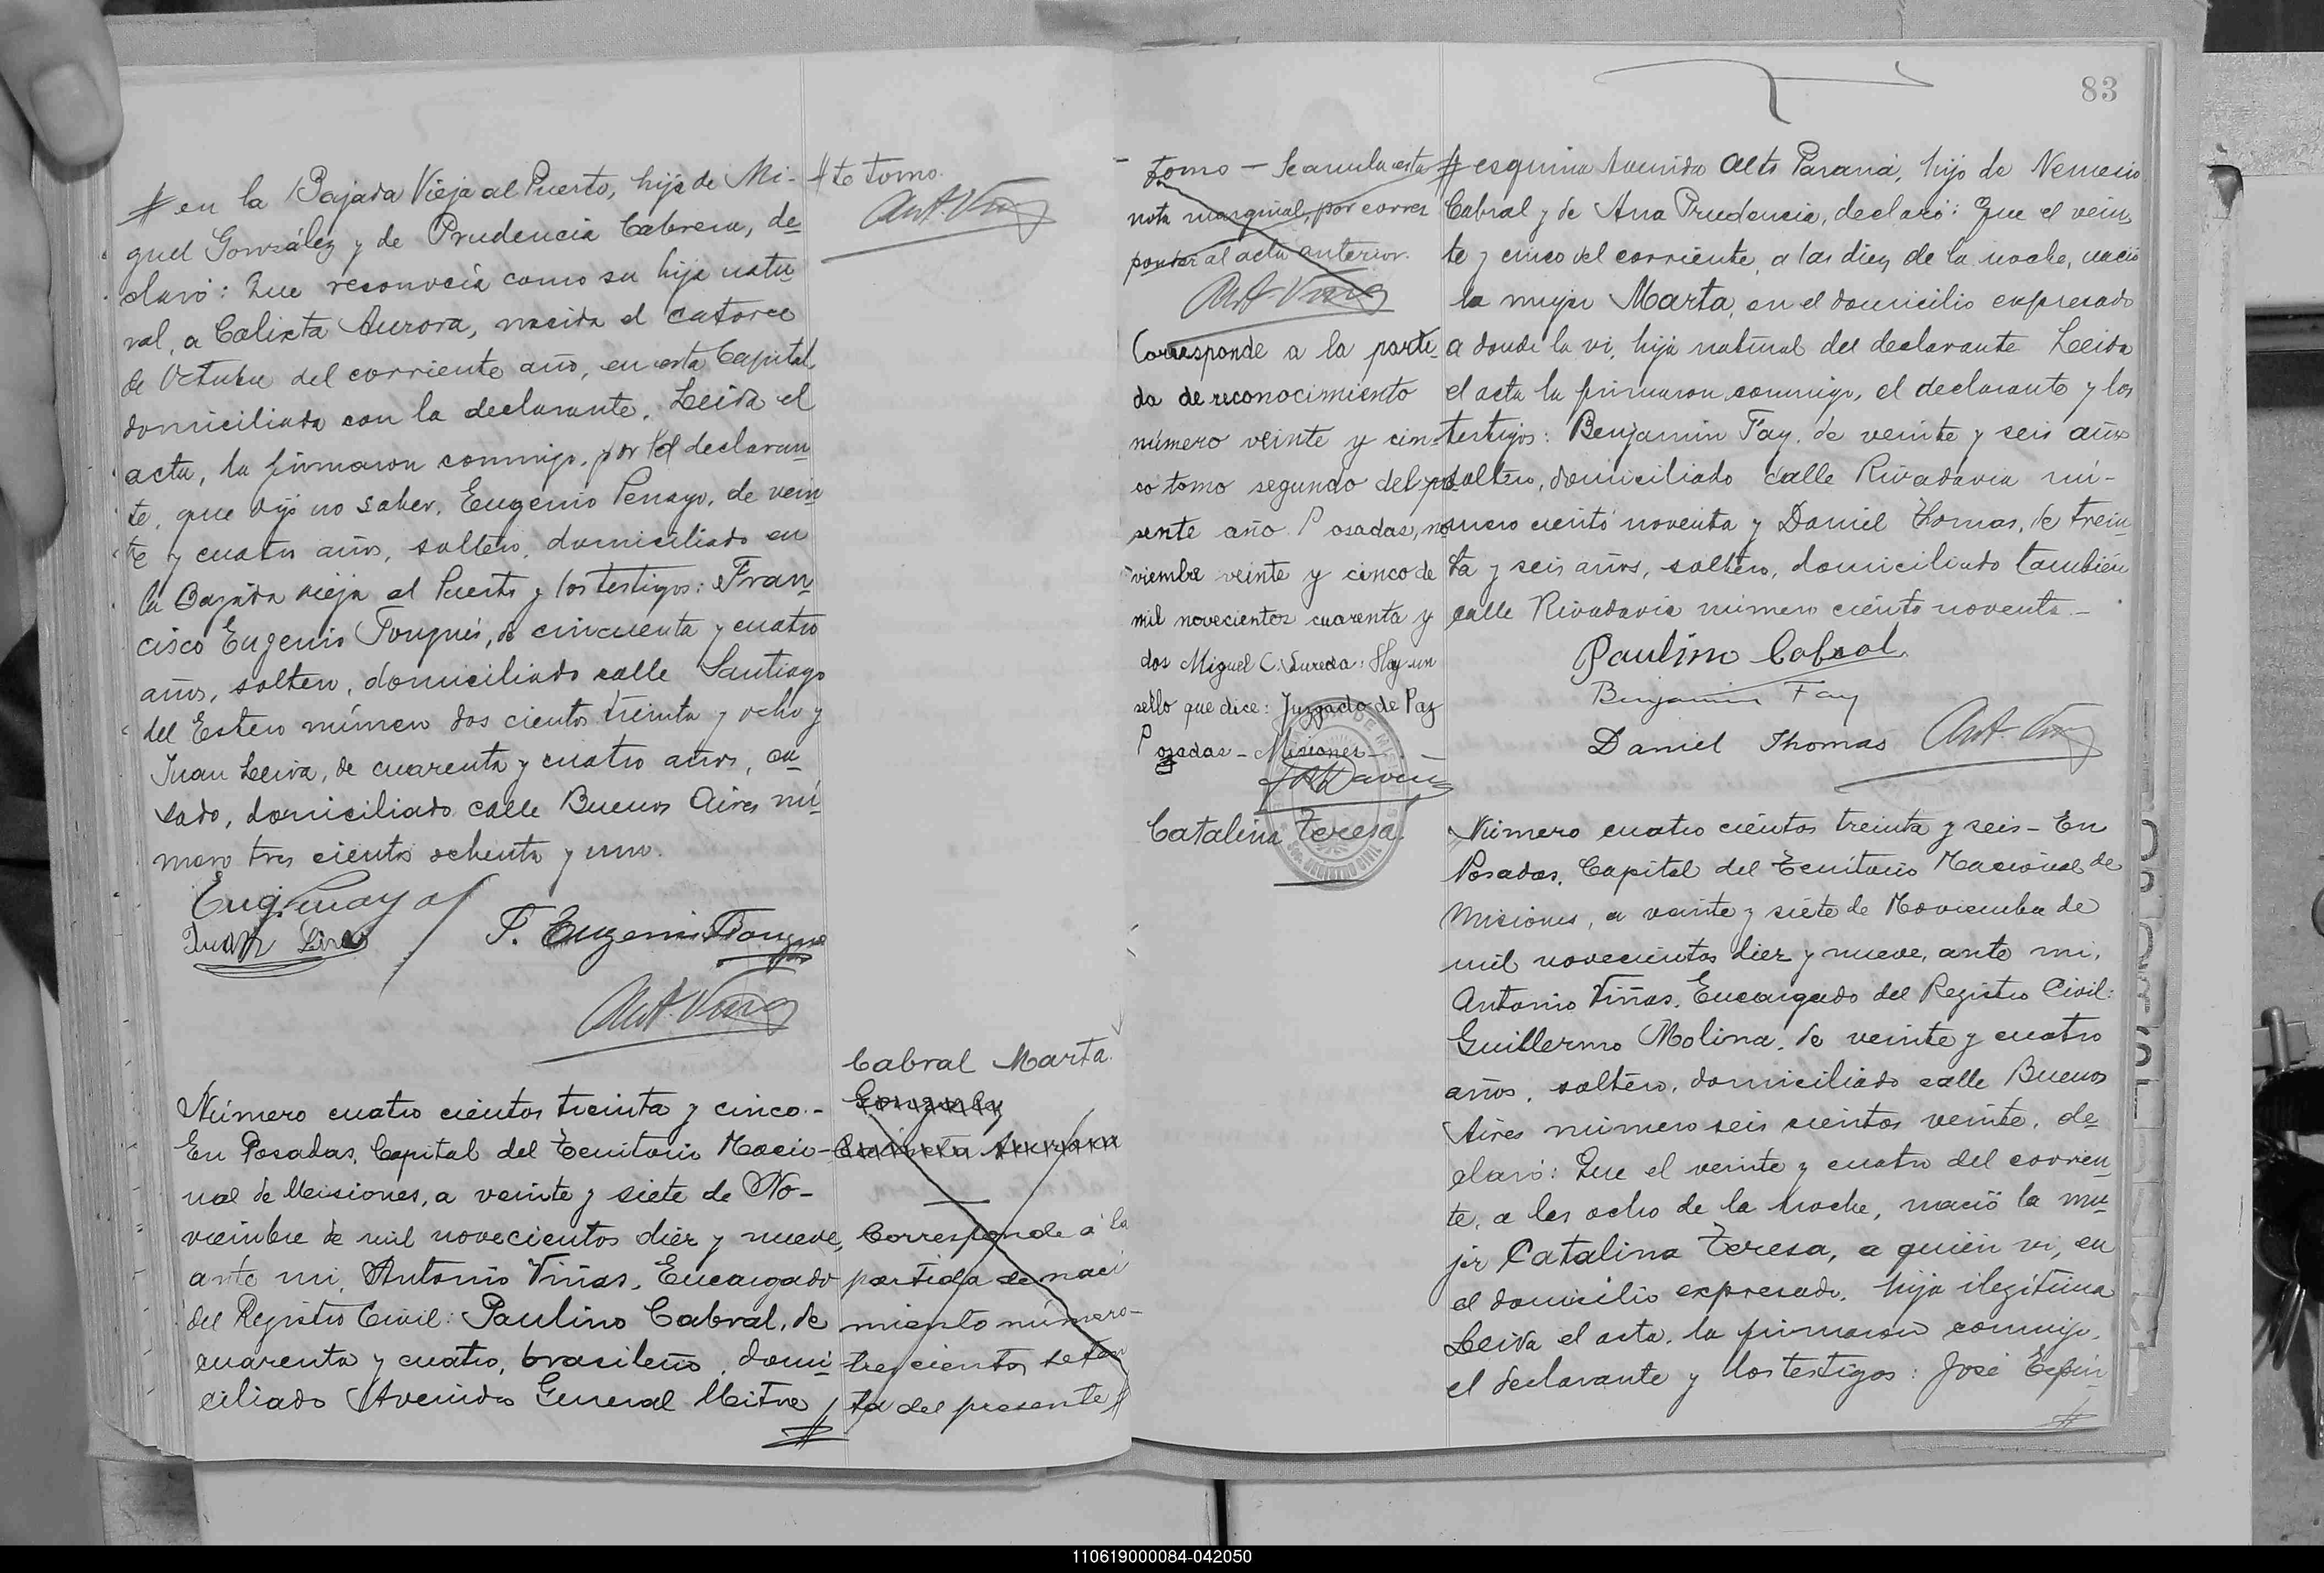 # en la Bajada Vieja al Puerto, hijo de Mi-
guel González y de Prudencia Cabrera, de
claró: Que reconocía como su hija natu
ral, a Calixta Aurora, nacida el catorce
de Octubre del corriente año, en esta Capital
domiciliada con la declarante. Leida el
acta, la firmaron conmigo, por el declaran
te, que dijo no saber, Eugenio Penayo, de vein
te y cuatro años, soltero, domiciliado en
la Bajada vieja al Puerto y los testigos: Fran
cisco Eugenio Fouqués, de cincuenta y cuatro
años, soltero, domiciliado calle Santiago
del Estero número dos cientos treinta y ocho y
Juan Leiva, de cuarenta y cuatro años, ca
sado, domiciliado calle Buenos Aires nú
mero tres cientos ochenta y uno.
Eug. Penayo
Juan Leiva
F. Eugenio Fouques
Ant. Viñas
# te tomo.
Ant. Viñas
Número cuatro cientos treinta y cinco.-
En Posadas, Capital del Territorio Nacio-
nal de Misiones, a veinte y siete de No-
viembre de mil novecientos diez y nueve,
ante mi, Antonio Viñas, Encargado
del Registro Civil: Paulino Cabral, de
cuarenta y cuatro, brasileño, domi-
ciliado Avenida General Mitre
#
Cabral Marta.
Gonzalez
Calixta Aurora
Corresponde á la
partida de naci
miento número-
trescientos seten
ta del presente #
83
tomo - Se anula esta
nota marginal, por corres
ponder al acta anterior.
Ant. Viñas
Corresponde a la parti-
da de reconocimiento
número veinte y cin-
co tomo segundo del pre
sente año. Posadas, no
viembre veinte y cinco de
mil novecientos cuarenta y
dos Miguel C. Sureda: Hay un
sello que dice: Juzgado de Paz
Posadas - Misiones -
Catalina Teresa.
# esquina Avenida Alto Paraná, hijo de Nemesio
Cabral y de Ana Prudencia, declaró: Que el vein
te y cinco del corriente, a las diez de la noche, nació
la mujer Marta, en el domicilio expresado
a donde la vi, hija natural del declarante Leida
el acta la firmaron conmigo, el declarante y los
testigos: Benjamin Fay, de veinte y seis años
soltero, domiciliado calle Rivadavia nú-
mero ciento noventa y Daniel Thomas, de trein
ta y seis años, soltero, domiciliado también
calle Rivadavia número ciento noventa.-
Paulino Cabral
Benjamin Fay
Daniel Thomas
Ant. Viñas
Número cuatro cientos treinta y seis - En
Posadas, Capital del Territorio Nacional de
Misiones, a veinte y siete de Noviembre de
mil novecientos diez y nueve, ante mi,
Antonio Viñas, Encargado del Registro Civil:
Guillermo Molina, de veinte y cuatro
años, soltero, domiciliado calle Buenos
Aires número seis cientos veinte, de
claró: Que el veinte y cuatro del corrien
te, a las ocho de la noche, nació la mu
jer Catalina Teresa, a quién vi, en
el domicilio expresado, hija ilegítima
Leida el acta, la firmaron conmigo,
el declarante y los testigos: José Espin
#
110619000084-042050